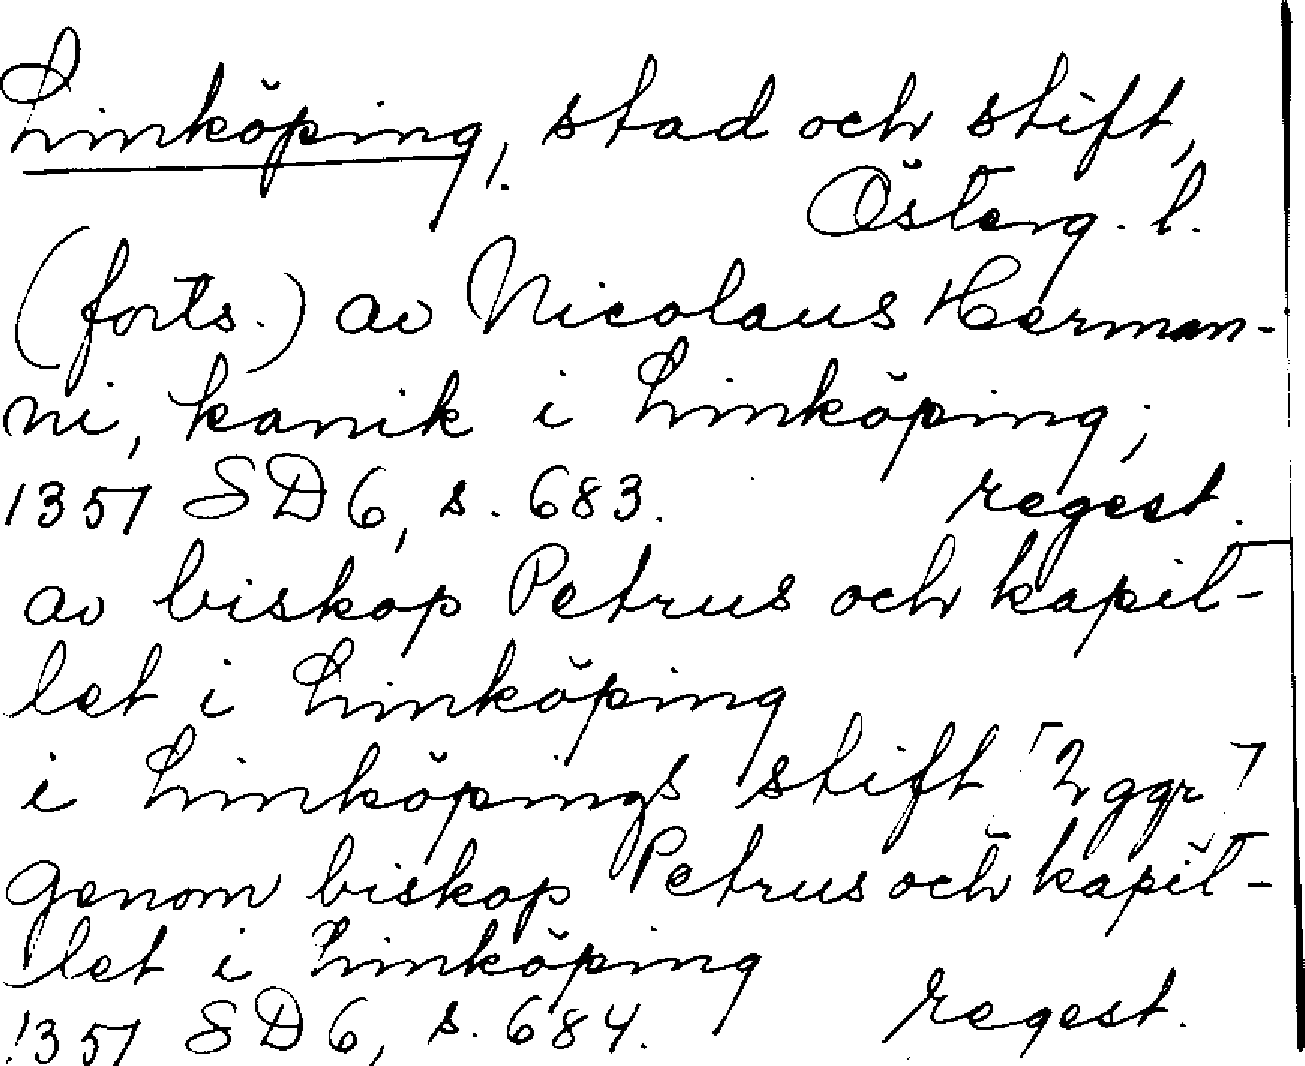 Linköping, stad och stift,
Österg. l.
(forts.) av Nicolaus Herman-
ni, kanik i Linköping;
1351 SD 6, s. 683. regest.
av biskop Petrus och kapit-
let i Linköping
i Linköpings stift [2 ggr]
genom biskop Petrus och kapit-
let i Linköping
1351 SD 6, s. 684. regest.